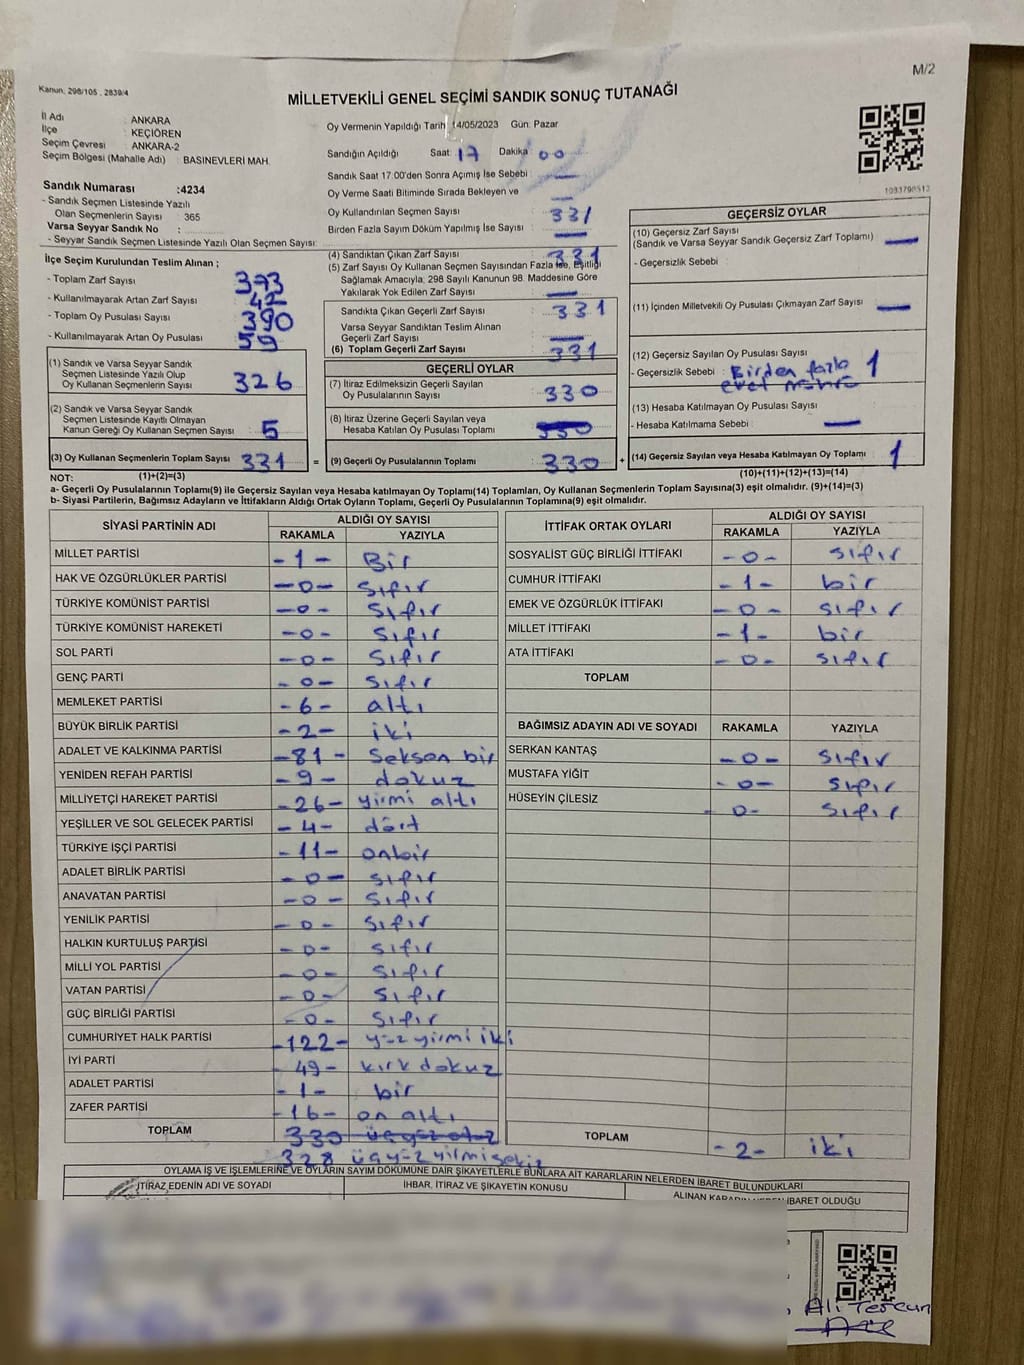 M/2
Kanun, 298/105 , 2839/4
MİLLETVEKİLİ GENEL SEÇİMİ SANDIK SONUÇ TUTANAĞI
İl Adı : ANKARA
İlçe : KEÇİÖREN
Seçim Çevresi : ANKARA-2
Seçim Bölgesi (Mahalle Adı) : BASINEVLERİ MAH.
Sandık Numarası :4234
- Sandık Seçmen Listesinde Yazılı
Olan Seçmenlerin Sayısı : 365
Varsa Seyyar Sandık No :
- Seyyar Sandık Seçmen Listesinde Yazılı Olan Seçmen Sayısı:
Oy Vermenin Yapıldığı Tarih 14/05/2023 Gün: Pazar
Sandığın Açıldığı Saat : 17 Dakika : 00
Sandık Saat 17:00'den Sonra Açımış İse Sebebi : —
Oy Verme Saati Bitiminde Sırada Bekleyen ve —
Oy Kullandırılan Seçmen Sayısı : 331
Birden Fazla Sayım Döküm Yapılmış İse Sayısı : —
1093798512
İlçe Seçim Kurulundan Teslim Alınan ;
- Toplam Zarf Sayısı : 373
- Kullanılmayarak Artan Zarf Sayısı : 42
- Toplam Oy Pusulası Sayısı : 390
- Kullanılmayarak Artan Oy Pusulası : 59
(1) Sandık ve Varsa Seyyar Sandık
Seçmen Listesinde Yazılı Olup
Oy Kullanan Seçmenlerin Sayısı : 326
(2) Sandık ve Varsa Seyyar Sandık
Seçmen Listesinde Kayıtlı Olmayan
Kanun Gereği Oy Kullanan Seçmen Sayısı : 5
(3) Oy Kullanan Seçmenlerin Toplam Sayısı : 331
(1)+(2)=(3)
(4) Sandıktan Çıkan Zarf Sayısı : 331
(5) Zarf Sayısı Oy Kullanan Seçmen Sayısından Fazla İse, Eşitliği
Sağlamak Amacıyla, 298 Sayılı Kanunun 98. Maddesine Göre
Yakılarak Yok Edilen Zarf Sayısı : —
Sandıkta Çıkan Geçerli Zarf Sayısı : 331
Varsa Seyyar Sandıktan Teslim Alınan
Geçerli Zarf Sayısı : —
(6) Toplam Geçerli Zarf Sayısı : 331
GEÇERLİ OYLAR
(7) İtiraz Edilmeksizin Geçerli Sayılan
Oy Pusulalarının Sayısı : 330
(8) İtiraz Üzerine Geçerli Sayılan veya
Hesaba Katılan Oy Pusulası Toplamı : 330
= (9) Geçerli Oy Pusulalarının Toplamı : 330
GEÇERSİZ OYLAR
(10) Geçersiz Zarf Sayısı
(Sandık ve Varsa Seyyar Sandık Geçersiz Zarf Toplamı) : —
- Geçersizlik Sebebi :
(11) İçinden Milletvekili Oy Pusulası Çıkmayan Zarf Sayısı : —
(12) Geçersiz Sayılan Oy Pusulası Sayısı : 1
- Geçersizlik Sebebi : Birden fazla
evet mührü
(13) Hesaba Katılmayan Oy Pusulası Sayısı :
- Hesaba Katılmama Sebebi : —
+ (14) Geçersiz Sayılan veya Hesaba Katılmayan Oy Toplamı : 1
(10)+(11)+(12)+(13)=(14)
NOT:
a- Geçerli Oy Pusulalarının Toplamı(9) ile Geçersiz Sayılan veya Hesaba katılmayan Oy Toplamı(14) Toplamları, Oy Kullanan Seçmenlerin Toplam Sayısına(3) eşit olmalıdır. (9)+(14)=(3)
b- Siyasi Partilerin, Bağımsız Adayların ve İttifakların Aldığı Ortak Oyların Toplamı, Geçerli Oy Pusulalarının Toplamına(9) eşit olmalıdır.
SİYASİ PARTİNİN ADI ALDIĞI OY SAYISI
RAKAMLA YAZIYLA
MİLLET PARTİSİ -1- Bir
HAK VE ÖZGÜRLÜKLER PARTİSİ -0- Sıfır
TÜRKİYE KOMÜNİST PARTİSİ -0- Sıfır
TÜRKİYE KOMÜNİST HAREKETİ -0- Sıfır
SOL PARTİ -0- Sıfır
GENÇ PARTİ -0- Sıfır
MEMLEKET PARTİSİ -6- altı
BÜYÜK BİRLİK PARTİSİ -2- iki
ADALET VE KALKINMA PARTİSİ -81- Seksen bir
YENİDEN REFAH PARTİSİ -9- dokuz
MİLLİYETÇİ HAREKET PARTİSİ -26- yirmi altı
YEŞİLLER VE SOL GELECEK PARTİSİ -4- dört
TÜRKİYE İŞÇİ PARTİSİ -11- onbir
ADALET BİRLİK PARTİSİ -0- sıfır
ANAVATAN PARTİSİ -0- Sıfır
YENİLİK PARTİSİ -0- Sıfır
HALKIN KURTULUŞ PARTİSİ -0- Sıfır
MİLLİ YOL PARTİSİ -0- Sıfır
VATAN PARTİSİ -0- Sıfır
GÜÇ BİRLİĞİ PARTİSİ -0- Sıfır
CUMHURİYET HALK PARTİSİ -122- yüz yirmi iki
İYİ PARTİ -49- kırk dokuz
ADALET PARTİSİ -1- bir
ZAFER PARTİSİ -16- on altı
TOPLAM 330 üçyüz otuz
328 üçyüz yirmisekiz
İTTİFAK ORTAK OYLARI ALDIĞI OY SAYISI
RAKAMLA YAZIYLA
SOSYALİST GÜÇ BİRLİĞİ İTTİFAKI -0- sıfır
CUMHUR İTTİFAKI -1- bir
EMEK VE ÖZGÜRLÜK İTTİFAKI -0- sıfır
MİLLET İTTİFAKI -1- bir
ATA İTTİFAKI -0- sıfır
TOPLAM
BAĞIMSIZ ADAYIN ADI VE SOYADI RAKAMLA YAZIYLA
SERKAN KANTAŞ -0- sıfır
MUSTAFA YİĞİT -0- sıfır
HÜSEYİN ÇİLESİZ -0- sıfır
TOPLAM -2- iki
OYLAMA İŞ VE İŞLEMLERİNE VE OYLARIN SAYIM DÖKÜMÜNE DAİR ŞİKAYETLERLE BUNLARA AİT KARARLARIN NELERDEN İBARET BULUNDUKLARI
İTİRAZ EDENİN ADI VE SOYADI İHBAR, İTİRAZ VE ŞİKAYETİN KONUSU ALINAN KARARIN NEDEN İBARET OLDUĞU
Ali Tercun